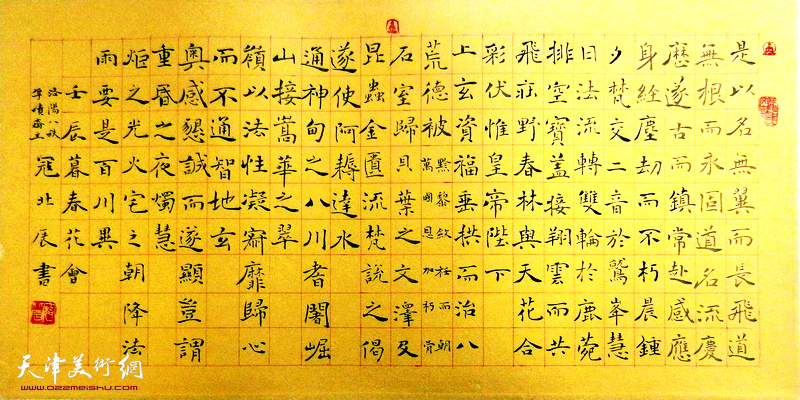 是以名無翼而長飛道
無根而永固道名流慶
歷遂古而鎮常赴感應
身經塵劫而不朽晨鍾
夕梵交二音於鷲峯慧
日法流轉雙輪於鹿菀
排空寶蓋接翔雲而共
飛莊野春林與天花合
彩伏惟皇帝陛下
上玄資福垂拱而治八
荒德被
黔黎斂衽而朝
萬國恩加朽骨
石室歸貝葉之文澤及
昆蟲金匱流梵說之偈
遂使阿耨達水
通神甸之八川耆闍崛
山接嵩華之翠
嶺以法性凝寂靡歸心
而不通智地玄
奧感懇誠而遂顯豈謂
重昏之夜燭慧
炬之光火宅之朝降法
雨要是百川異
壬辰暮春花會
洛陽八秩
寇北辰書
天津美術網
www.022meishu.com